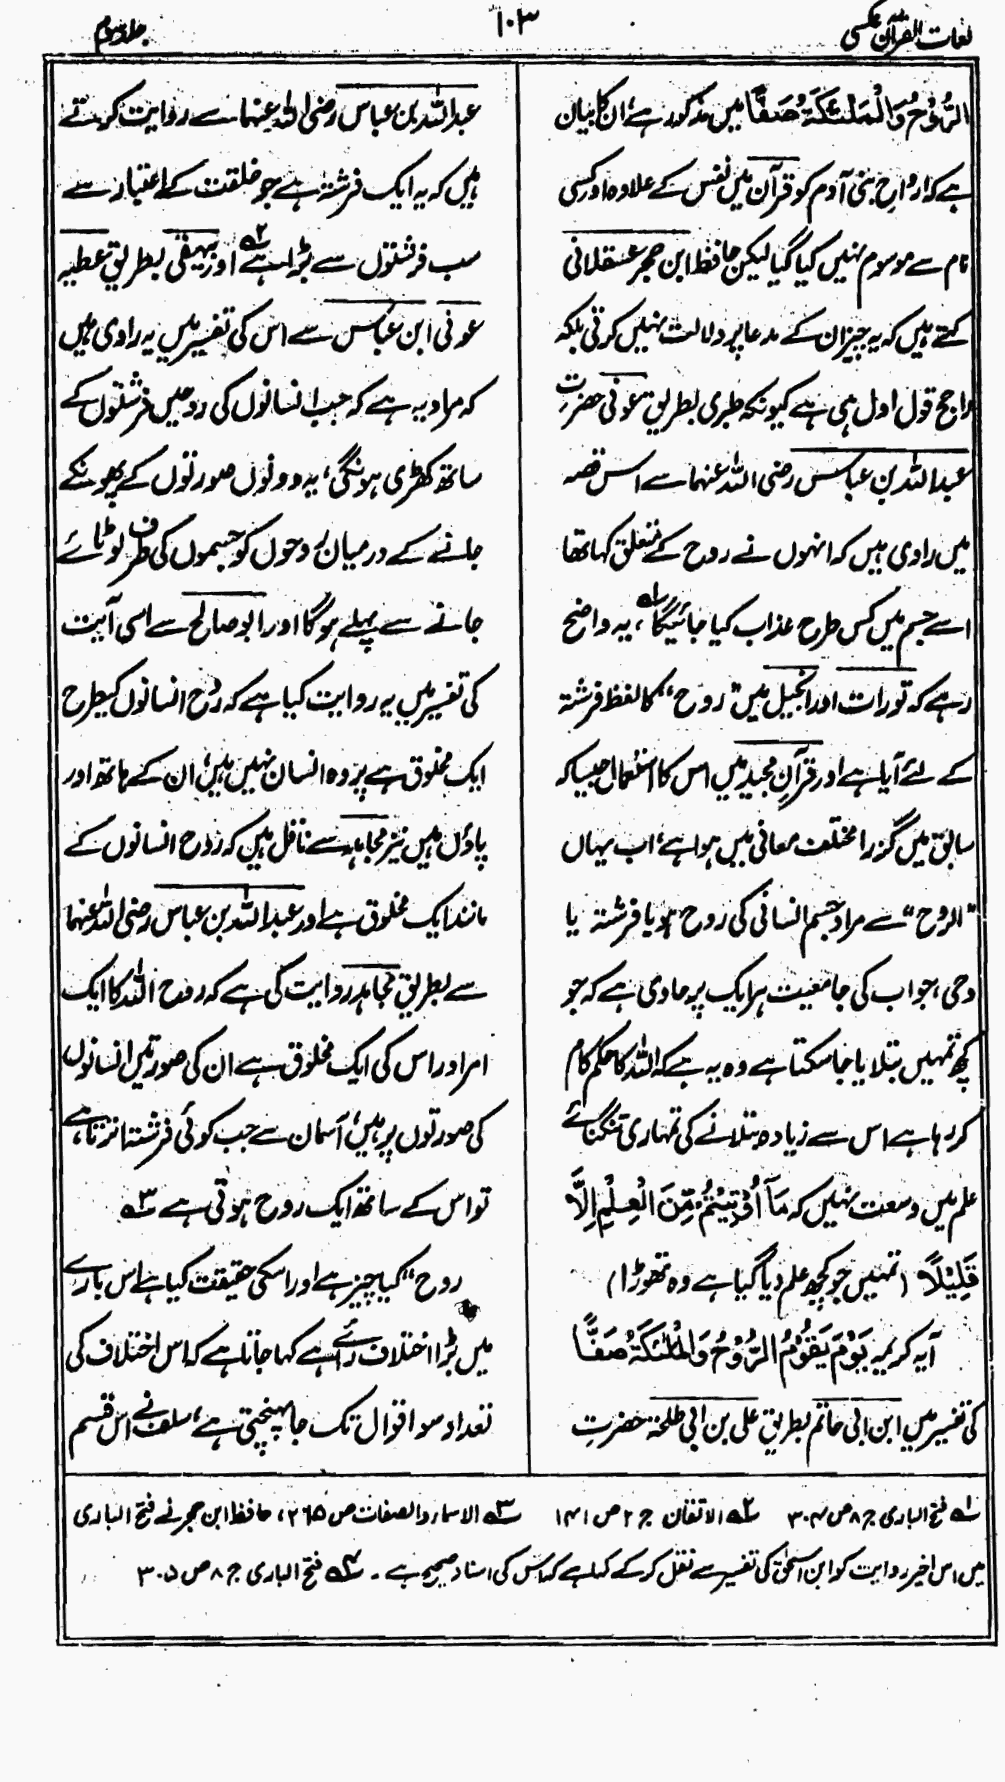 لغات القرآن عکسی
۱۰۳
جلد سوم
الرُّوْحُ وَالْمَلٰٓئِكَةُ صَفًّا میں مذکور ہے، ان کا بیان
ہے کہ ارواح بنی آدم کو قرآن میں نفس کے علاوہ اور کسی
نام سے موسوم نہیں کیا گیا لیکن حافظ ابن حجر عسقلانی
کہتے ہیں کہ یہ چیز ان کے مدعا پر دلالت نہیں کرتی بلکہ
راجح قول اول ہی ہے کیونکہ طبری بطریق عوفی حضرتِ
عبداللہ بن عباس رضی اللہ عنہما سے اس قصہ
میں راوی ہیں کہ انہوں نے روح کے متعلق کہا تھا
اسے جسم میں کس طرح عذاب کیا جائیگا ۱ے، یہ واضح
رہے کہ تورات اور انجیل میں "روح" کا لفظ فرشتہ
کے لئے آیا ہے اور قرآنِ مجید میں اس کا استعمال جیسا کہ
سابق میں گزرا مختلف معانی میں ہوا ہے، اب یہاں
"الروح" سے مراد جسم انسانی کی روح ہو یا فرشتہ یا
وحی، جواب کی جامعیت ہر ایک پر حاوی ہے کہ جو
کچھ تمہیں بتلایا جا سکتا ہے وہ یہ ہے کہ اللہ کا حکم کام
کر رہا ہے اس سے زیادہ بتلانے کی تمہاری تنگنائے
علم میں وسعت نہیں کہ مَآ اُوْتِيْتُمْ مِّنَ الْعِلْمِ اِلَّا
قَلِيْلًا (تمہیں جو کچھ علم دیا گیا ہے وہ تھوڑا)
آیہ کریمہ يَوْمَ يَقُوْمُ الرُّوْحُ وَالْمَلٰٓئِكَةُ صَفًّا
کی تفسیر میں ابن ابی حاتم بطریق علی بن ابی طلحہ حضرتِ
عبداللہ بن عباس رضی اللہ عنہما سے روایت کرتے
ہیں کہ یہ ایک فرشتہ ہے جو خلقت کے اعتبار سے
سب فرشتوں سے بڑا ہے ۲ے اور بیہقی بطریق عطیہ
عوفی ابن عباس سے اس کی تفسیر میں یہ راوی ہیں
کہ مراد یہ ہے کہ جب انسانوں کی روحیں فرشتوں کے
ساتھ کھڑی ہونگی، یہ دونوں صورتوں کے پھونکے
جانے کے درمیان روحوں کو جسموں کی طرف لوٹائے
جانے سے پہلے ہوگا اور ابو صالح سے اسی آیت
کی تفسیر میں یہ روایت کیا ہے کہ رُوح انسانوں کیطرح
ایک مخلوق ہے پر وہ انسان نہیں ہیں، ان کے ہاتھ اور
پاؤں ہیں نیز مجاہد سے ناقل ہیں کہ رُوح انسانوں کے
مانند ایک مخلوق ہے اور عبداللہ بن عباس رضی اللہ عنہما
سے بطریق مجاہد روایت کی ہے کہ روح اللہ کا ایک
امر اور اس کی ایک مخلوق ہے ان کی صورتیں انسانوں
کی صورتوں پر ہیں، آسمان سے جب کوئی فرشتہ اترتا ہے،
تو اس کے ساتھ ایک روح ہوتی ہے ۳ے
روح" کیا چیز ہے اور اسکی حقیقت کیا ہے اس بارے
میں بڑا اختلاف رائے ہے کہا جاتا ہے کہ اس اختلاف کی
تعداد سو اقوال تک جا پہنچتی ہے، سلف نے اس قسم
۱ے فتح الباری ج ۸ ص ۳۰۴ ۲ے الاتقان ج ۲ ص ۱۴۱ ۳ے الاسماء والصفات ص ۲۶۵، حافظ ابن حجر نے فتح الباری
میں اس اخیر روایت کو ابن اسحٰق کی تفسیر سے نقل کر کے کہا ہے کہ اس کی اسناد صحیح ہے۔ ۴ے فتح الباری ج ۸ ص ۳۰۵